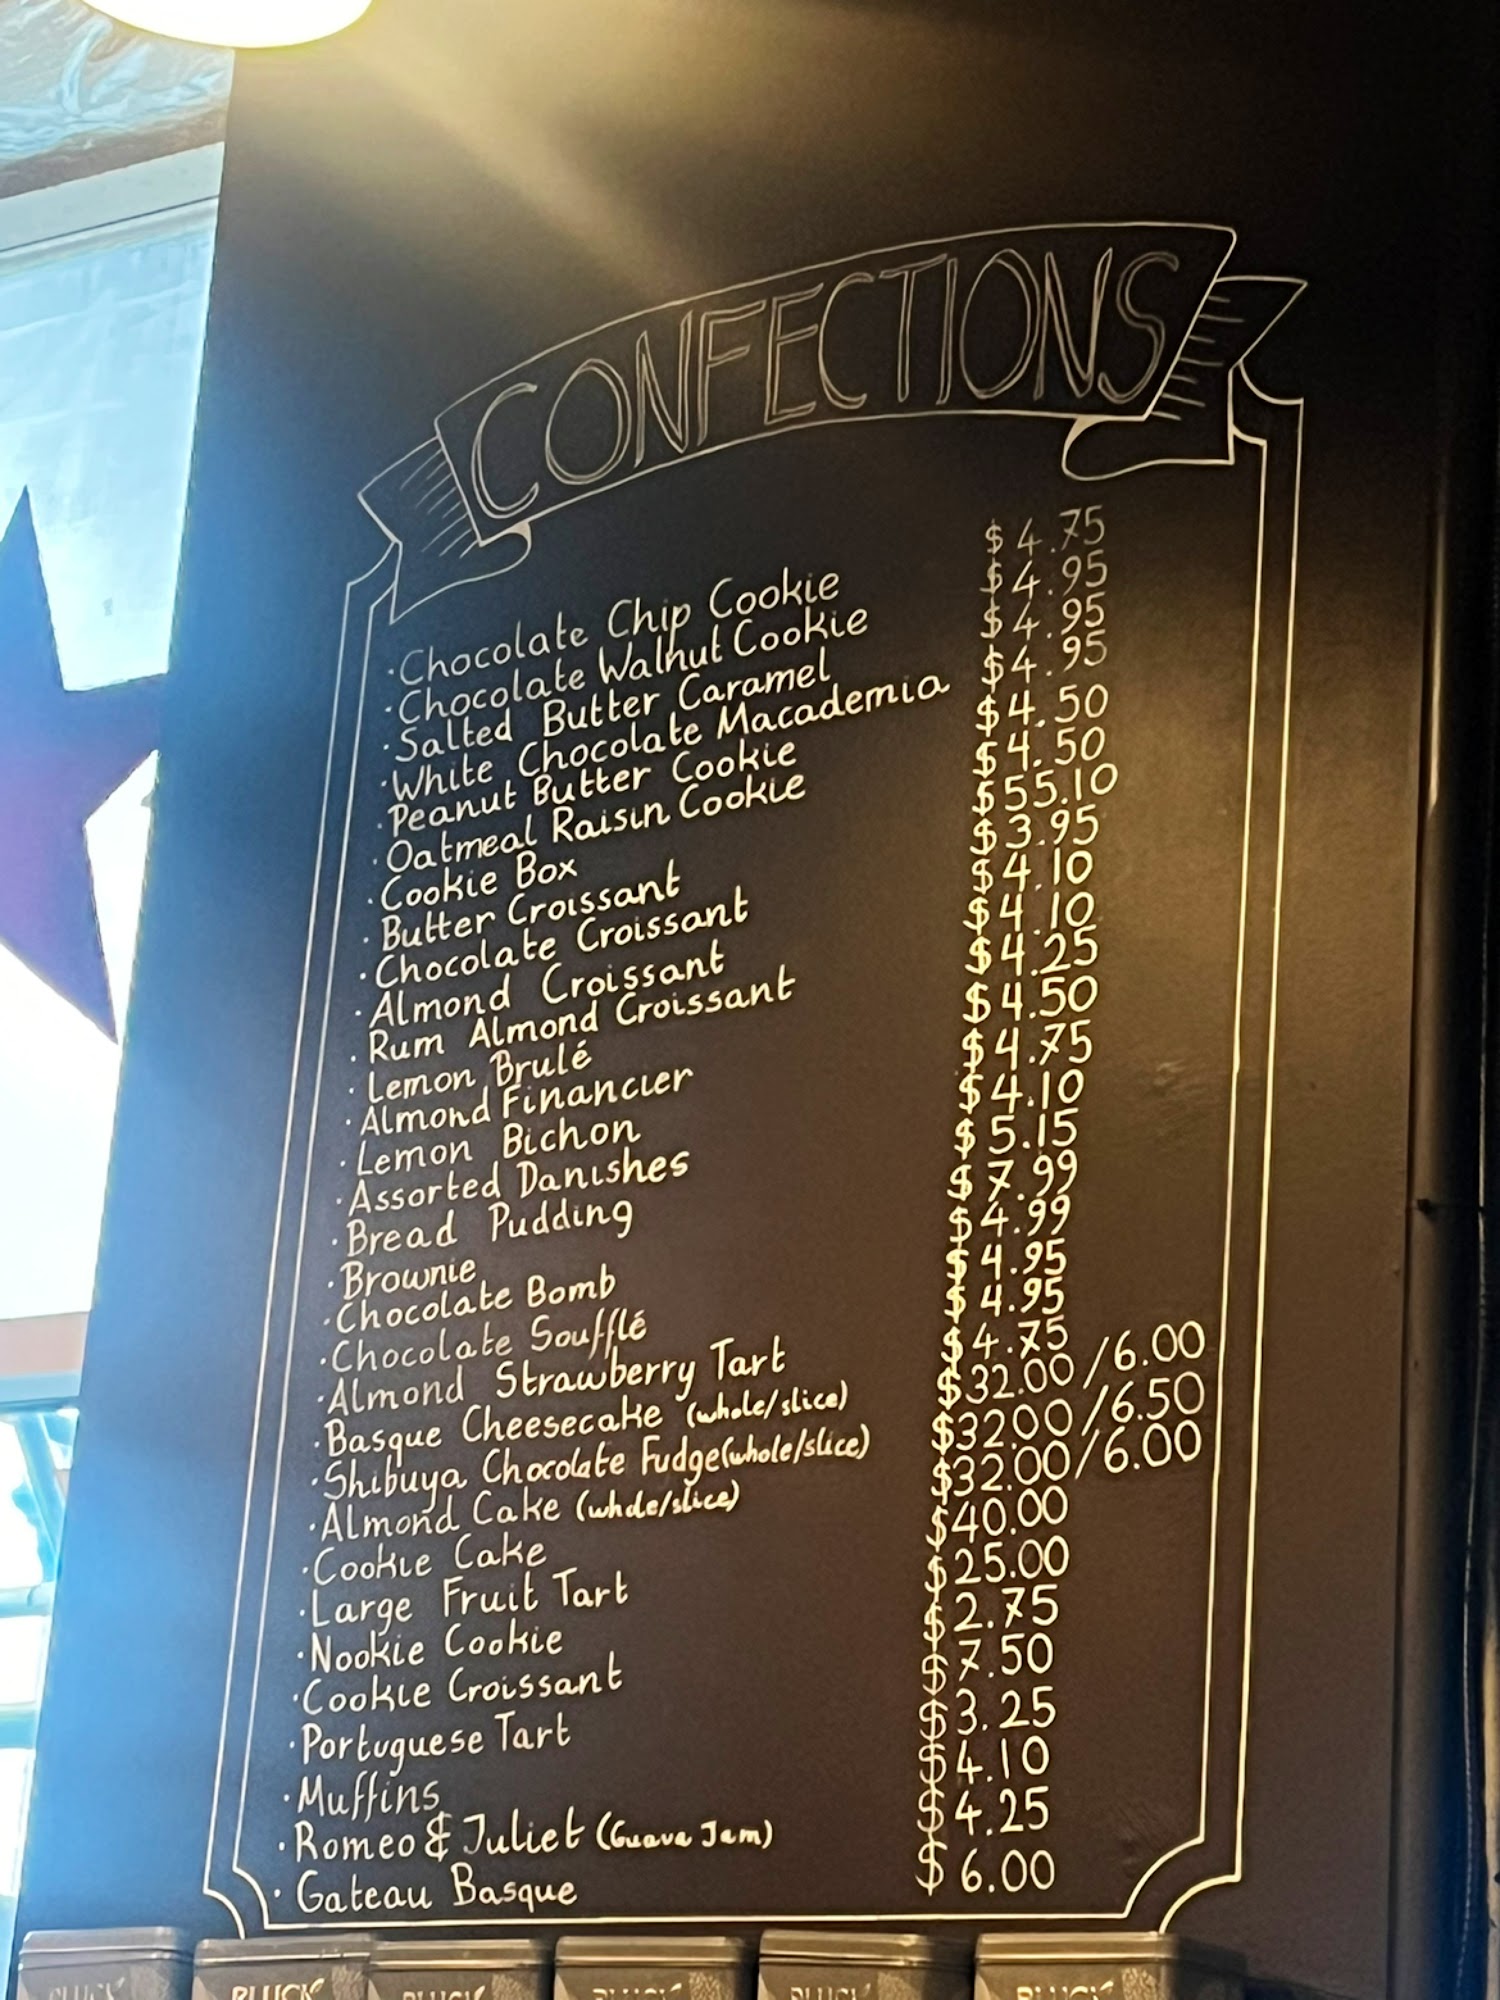 CONFECTIONS
· Chocolate Chip Cookie $4.75
· Chocolate Walnut Cookie $4.95
· Salted Butter Caramel $4.95
· White Chocolate Macademia $4.95
· Peanut Butter Cookie $4.50
· Oatmeal Raisin Cookie $4.50
· Cookie Box $55.10
· Butter Croissant $3.95
· Chocolate Croissant $4.10
· Almond Croissant $4.10
· Rum Almond Croissant $4.25
· Lemon Brulé $4.50
· Almond Financier $4.75
· Lemon Bichon $4.10
· Assorted Danishes $5.15
· Bread Pudding $7.99
· Brownie $4.99
· Chocolate Bomb $4.95
· Chocolate Soufflé $4.95
· Almond Strawberry Tart $4.75
· Basque Cheesecake (whole/slice) $32.00/6.00
· Shibuya Chocolate Fudge (whole/slice) $32.00/6.50
· Almond Cake (whole/slice) $32.00/6.00
· Cookie Cake $40.00
· Large Fruit Tart $25.00
· Nookie Cookie $2.75
· Cookie Croissant $7.50
· Portuguese Tart $3.25
· Muffins $4.10
· Romeo & Juliet (Guava Jam) $4.25
· Gateau Basque $6.00
PLUCK PLUCK PLUCK PLUCK PLUCK PLUCK